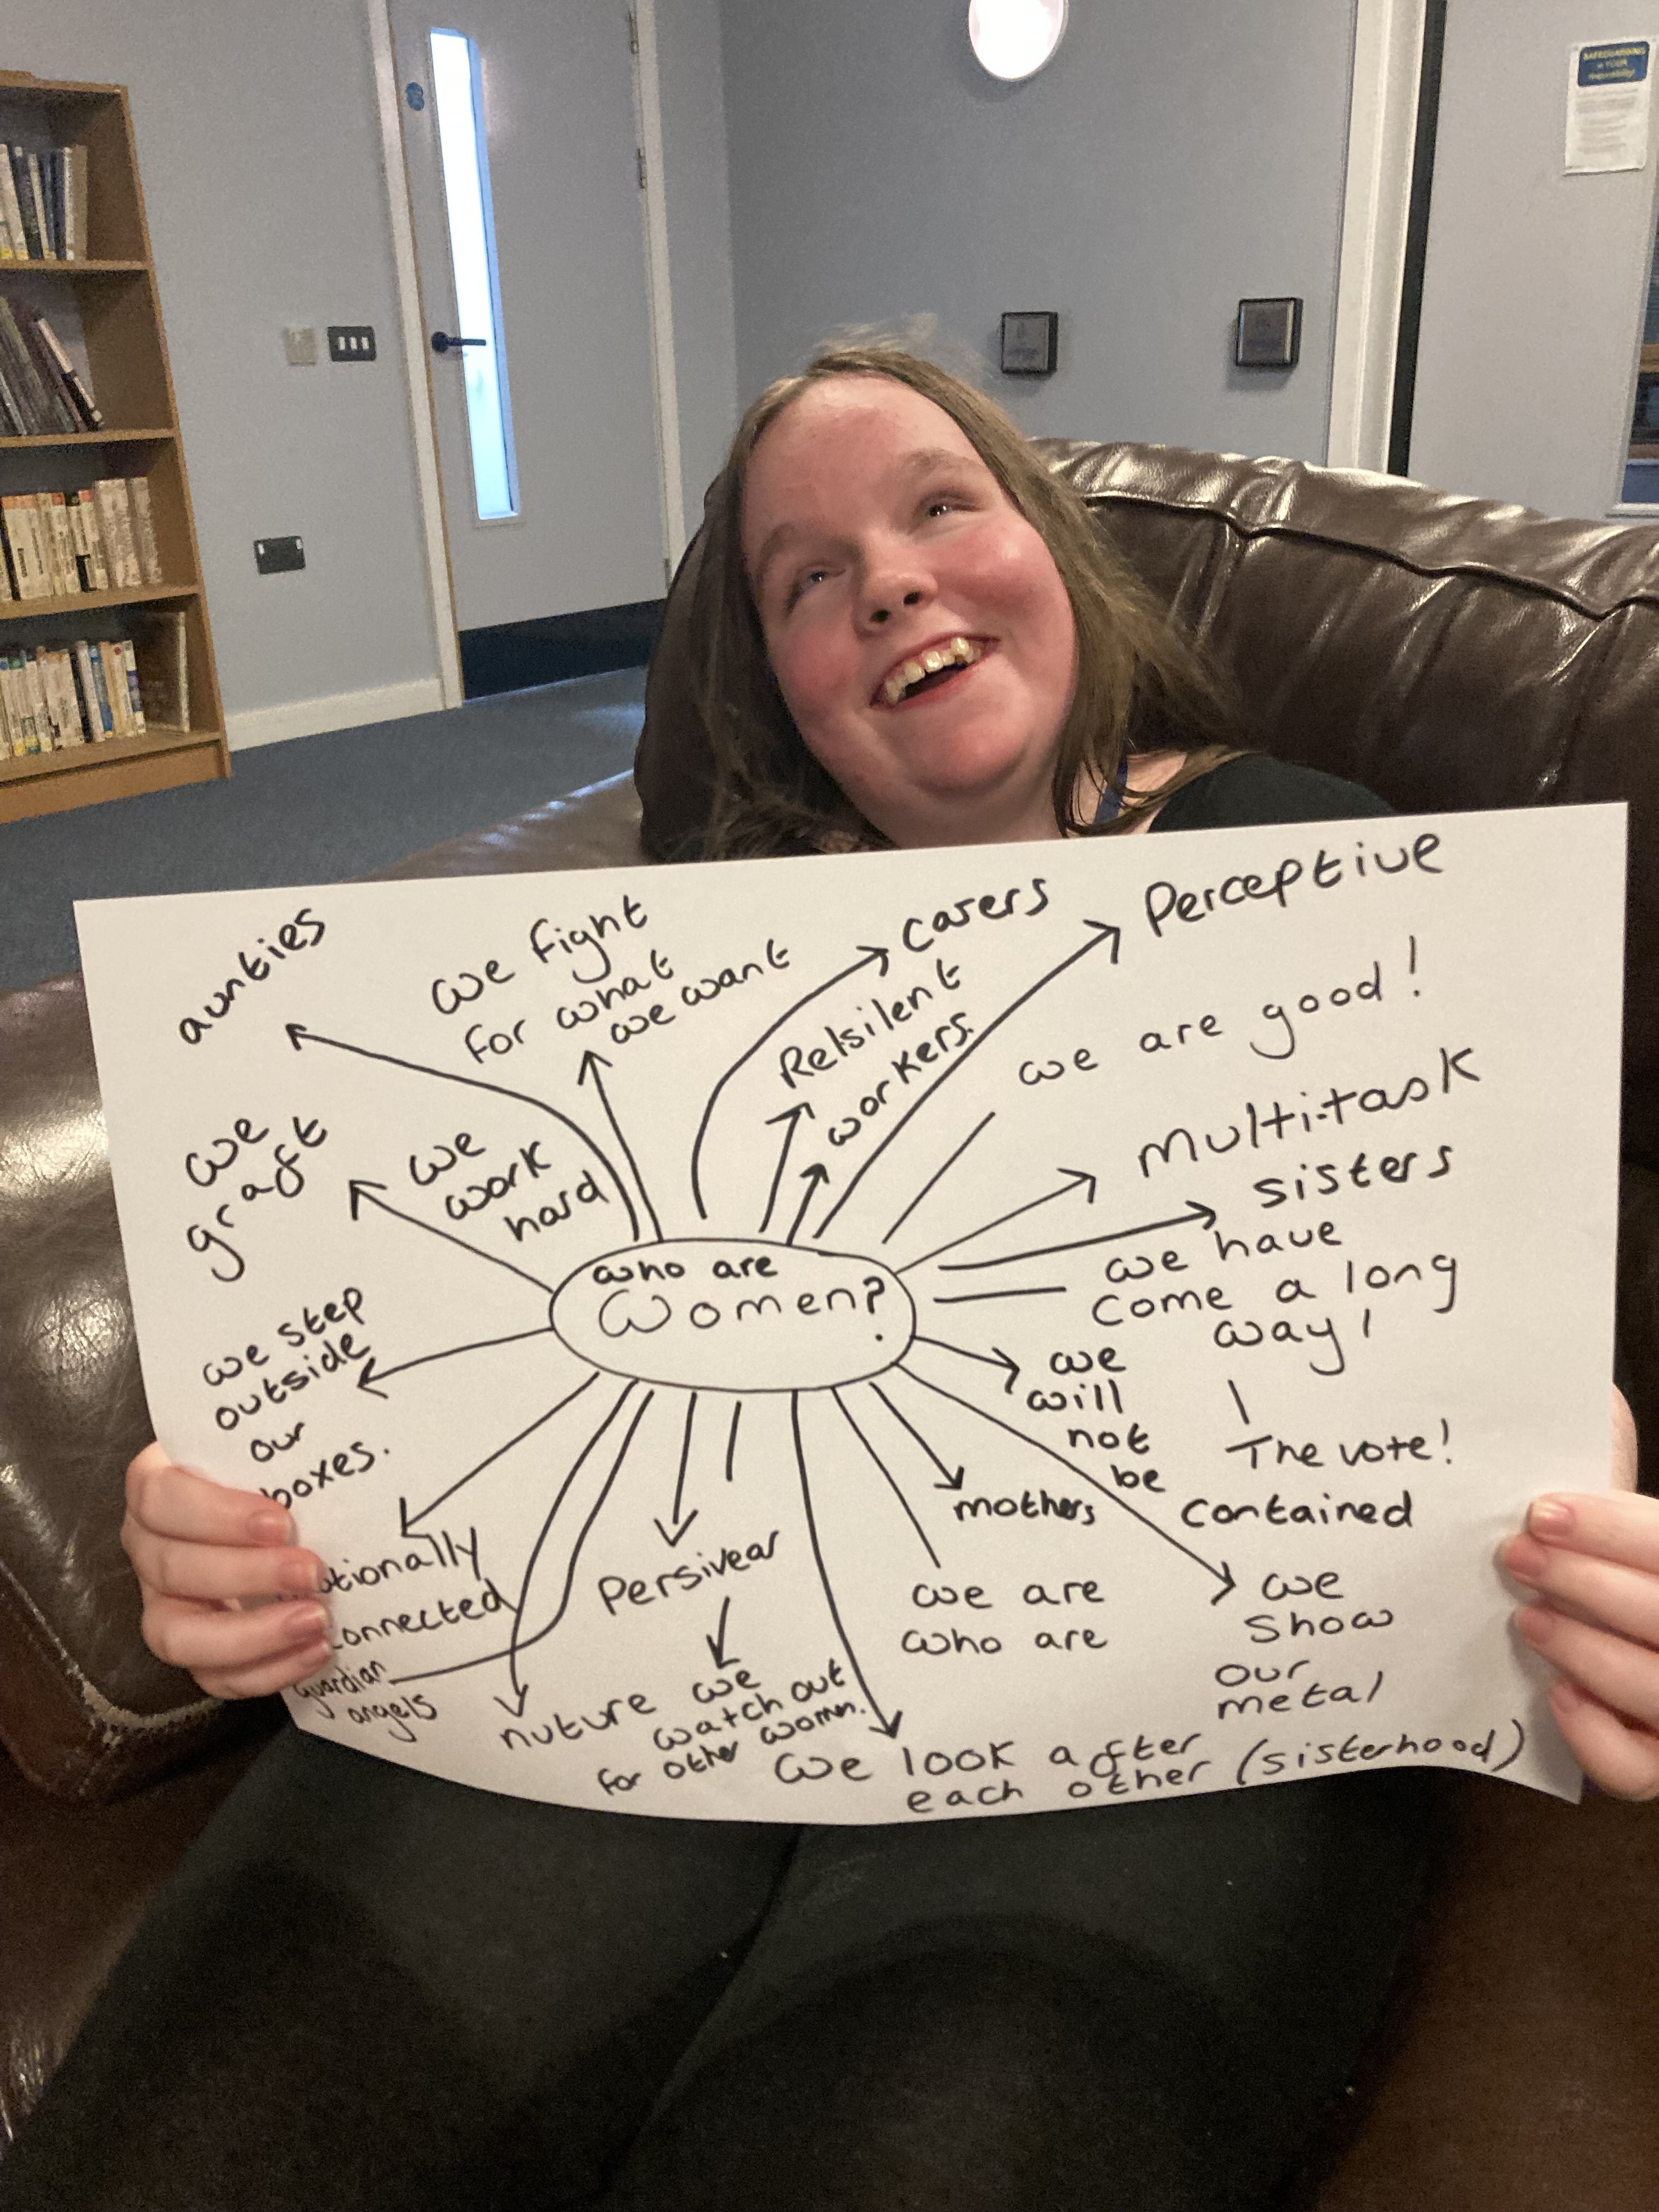 SAFEGUARDING
is YOUR
responsibility!
aunties
we fight
for what
we want
carers
Relsilent
workers.
Perceptive
we are good!
Multi-task
sisters
we have
come a long
way!
The vote!
we
graft
we
work
hard
who are
Women?
we step
outside
our
boxes.
we
will
not
be
contained
mothers
Persivear
we are
who are
we
show
our
metal
guardian
angels
nuture
we
watch out
for other women.
we look after
each other (sisterhood)